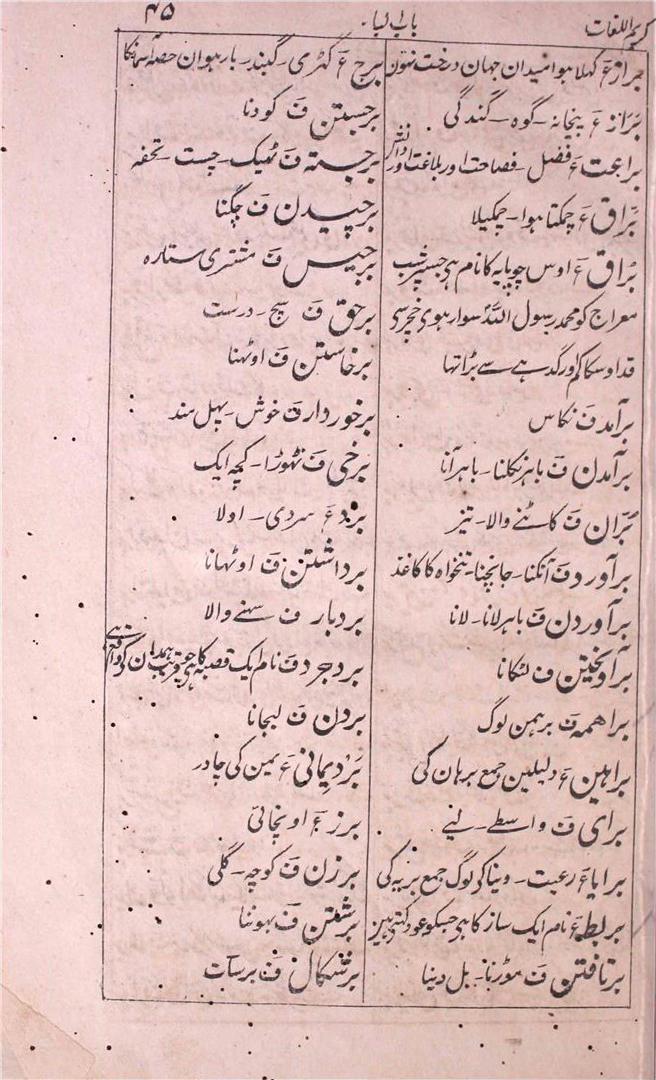 کریم اللغات
باب البا۔
۴۵
براز ع کہلا ہوا میدان جہان درخت نہون
بَراز ع پنجانہ۔ گوہ۔ گندگی
براعت ع فضل۔ فصاحت اور بلاغت اور
بَرّاق ع چمکتا ہوا۔ چمکیلا
بُراق ع اوس چوپایہ کا نام ہی جسپر شب
معراج کو محمد رسول اللہ سوار ہوی خچر سی
قد اوسکا کم اور گدہے سے بڑا تہا
برآمد ف نکاس
برآمدن ف باہر نکلنا۔ باہر آنا
بُرّان ف کاٹنے والا۔ تیز
برآورد ف آنکنا۔ جانچنا۔ تنخواہ کا کاغذ
برآوردن ف باہر لانا۔ لانا
برآویختن ف لٹکانا
براہمہ ف برہمن لوگ
براہین ع دلیلین جمع برہان کی
برای ف واسطے۔ لیے
برایا ع رعیت۔ دنیا کی لوگ جمع بریہ کی
بربط ع نام ایک ساز کا ہی جسکو عود کہتی ہیں
برتافتن ف موڑنا۔ بل دینا
برج ع گہڑی۔ گنبد۔ بارہوان حصہ آسمانکا
برجستن ف کودنا
برجستہ ف ٹہیک۔ چست۔ تحفہ
برچیدن ف چگنا
برجیس ف مشتری ستارہ
برحق ف سچ۔ درست
برخاستن ف اوٹہنا
برخوردار ف خوش۔ پہل مند
برخی ف تہوڑا۔ کچہ ایک
برد ع سردی۔ اولا
برداشتن ف اوٹہانا
بردبار ف سہنے والا
بردجرد ف نام ایک قصبہ کا ہی جو قریب ہمدان کی واقع ہے
بردن ف لیجانا
بَردِیمانی ع یمن کی چادر
برز ع اونچائی
برزن ف کوچہ۔ گلی
برشتن ف بہوننا
برشکال ف برسات